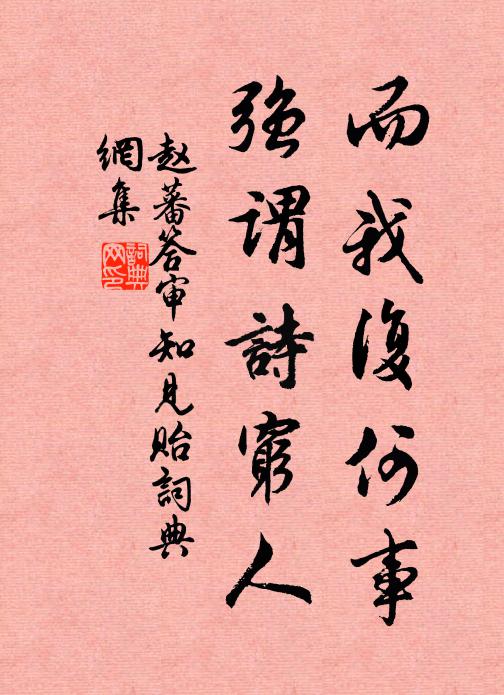 而我復何事
強謂詩窮人
赵蕃答审知見貽詞典
網集
詞典
网印